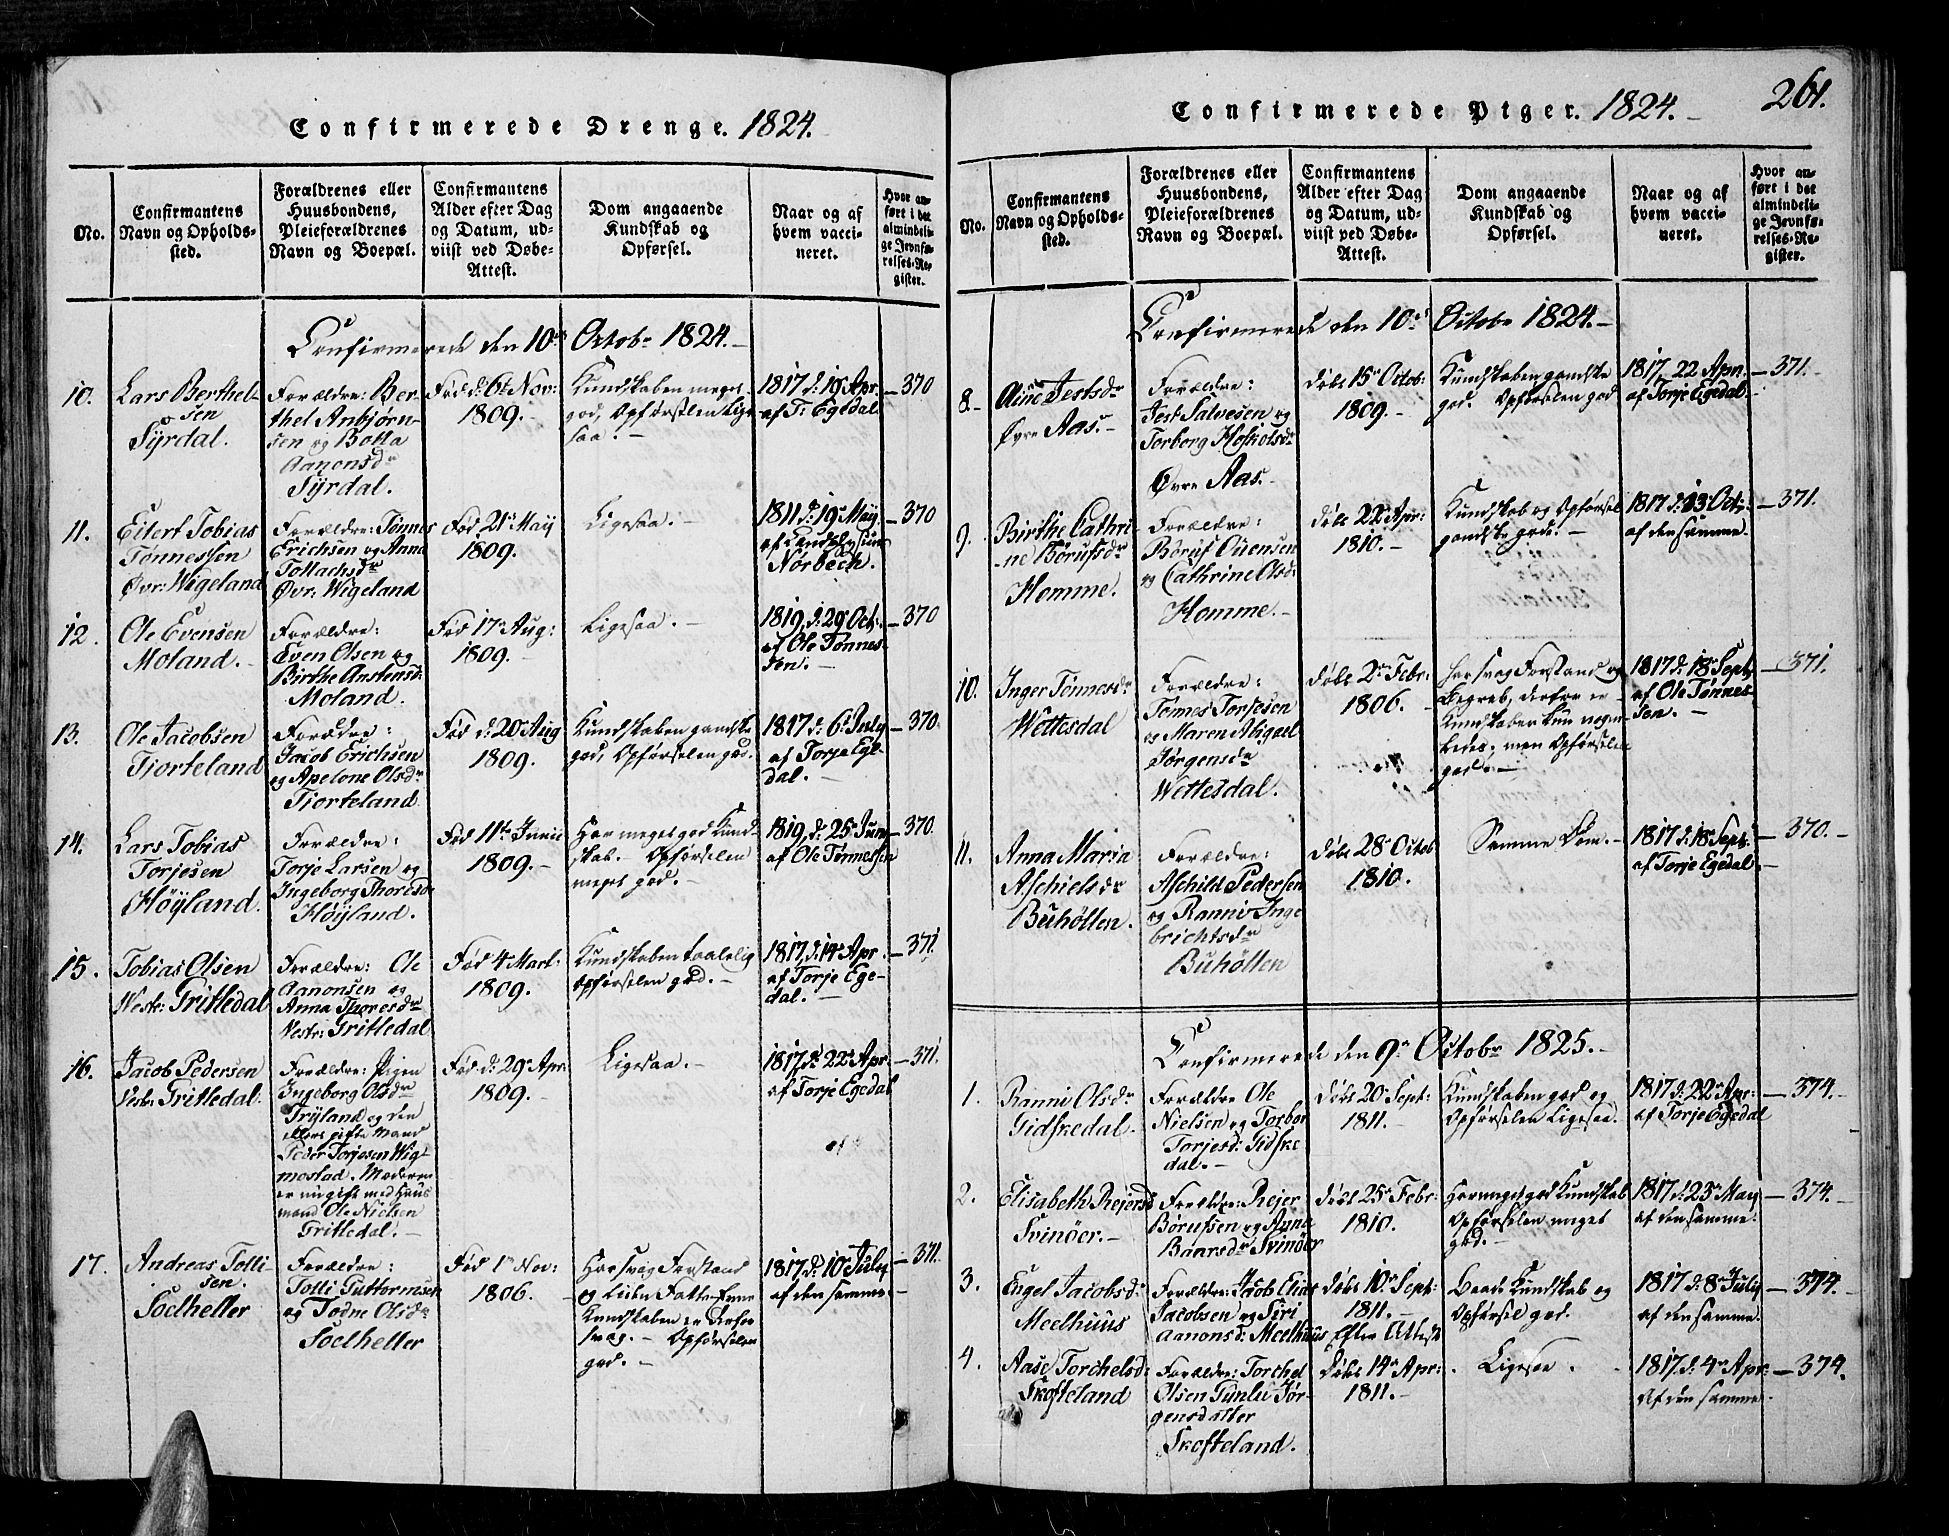 Confirmerede Drenge. 1824.
No.
Confirmantens
Navn og Opholds-
sted.
Forældrenes eller
Huusbondens,
Pleieforældrenes
Navn og Boepæl.
Confirmantens
Alder efter Dag
og Datum, ud-
viist ved Døbe-
Attest.
Dom angaaende
Kundskab og
Opførsel.
Naar og af
hvem vacci-
neret.
Hvor an-
ført i det
almindeli-
ge Jevnfø-
relses-Re-
gister.
Confirmerede den 10de Octobr 1824.
10.
Lars Berthel-
sen
Syrdal.
Forældre: Ber-
thel Anbjørn-
sen og Botta
Aanonsdr
Syrdal.
Fød d: 6te Nov:
1809.
Kundskaben meget
god, Opførselen lige
saa.
1817 d: 19de Apr.
af T: Egedal.
370
11.
Eilert Tobias
Tønnessen
Øvr: Wigeland
Forældre: Tønnes
Erichsen og Anna
Tollachsdr
Øvr: Wigeland
Fød 21de May
1809.
Ligesaa.
1811 d: 19de May
af
Norbech.
370
12.
Ole Evensen
Moland.
Forældre:
Even Olsen og
Birthe Anstensd:
Moland.
Fød 17de Aug:
1809.
Ligesaa.
1819, d: 29de Oct:
af Ole Tønnes-
sen.
370
13.
Ole Jacobsen
Fjorteland
Forældre:
Jacob Erichsen
og Apelone Olsdr
Fjorteland.
Fød d: 20de Aug
1809.
Kundskaben gandske
god, Opførselen god.
1817 d: 6te July
af Torje Ege-
dal.
370.
14.
Lars Tobias
Torjesen
Høyland.
Forældre:
Torje Larsen og
Ingeborg Thoresdr
Høyland.
Fød 11te Junii
1809.
Har meget god Kund-
skab. Opførselen
meget god.
1819, d: 25de Jun
af Ole Tønnessen
370.
15.
Tobias Olsen
Westr: Fritledal
Forældre: Ole
Aanonsen og
Anna Thoresdr
Vestr: Fritledal
Fød 4de Mart:
1809.
Kundskaben taalelig
Opførselen god.
1817, d: 14de Apr.
af Torje Ege-
dal.
371
16.
Jacob Pedersen
Vestr: Fritledal.
Forældre: Pigen
Ingeborg Olsdr
Fryland og den
ellers gifte Mand
Peder Torjesen Wig-
mostad. Moderen
er nu gift med Huus
mand Ole Nielsen
Fritledal.
Fød d: 29de Apr
1809.
Ligesaa.
1817, d: 22de Apr.
af Torje Egedal
371.
17.
Andreas Tolli-
sen.
Soelheller
Forældre:
Tolli Guttormsen
og Todne Olsdr
Soelheller
Fød 1ste Nov:
1806.
Har svag Forstand
og liden Fatte Evne
Kundskaben er derfor
svag. Opførselen
god.
1817 d: 10de July
af den samme.
371.
Confirmerede Piger. 1824.
261.
No.
Confirmantens
Navn og Opholds-
sted.
Forældrenes eller
Huusbondens,
Pleieforældrenes
Navn og Boepæl.
Confirmantens
Alder efter Dag
og Datum, ud-
viist ved Døbe-
Attest.
Dom angaaende
Kundskab og
Opførsel.
Naar og af
hvem vacci-
neret.
Hvor an-
ført i det
almindeli-
ge Jevnfø-
relses-Re-
gister.
Confirmerede den 10de Octobr 1824.
8.
Aine Jestsdr
Øvre Aas.
Forældre:
Jest Salvesen og
Torborg Hoskolsdr
Øvre Aas.
Døbt 15de Octob:
1809.
Kundskaben gandske
god. Opførselen god
1817, 22 Apr.
af Torje Egedal.
371.
9.
Birthe Cathri-
ne Børufsdr
Homme.
Forældre:
Børuf Ouensen
og Cathrine Olsd:
Homme.
Døbt 22de Apr:
1810.
Kundskab og Opførsel
gandske gode.
1817 d: 13 Oct:
af den samme.
371.
10.
Inger Tønnesdr
Wettesdal
Forældre:
Tønnes Torjesen
og Maren Abigael
Jørgensdr
Wettesdal.
Døbt 2den Febr:
1806.
Har svag Forstand og
Begreb, derfor er
Kundskaben kun nogen-
ledes; men Opførselen
god.
1817 d: 18de Sept:
af Ole Tønnes-
sen.
371.
11.
Anna Maria
Aschielsdr
Buhølten.
Forældre:
Aschild Pedersen
og Ranni Inge
brichtsdr
Buhølten
Døbt 28de Octob
1810.
Samme Dom.
1817 d: 18de Sept:
af Torje Egedal.
370.
Confirmerede den 9de Octobr 1825.
1.
Ranni Olsdr
Gidskedal.
Forældre Ole
Nielsen og Torbor
Torjesd: Gidske
dal.
Døbt 20de Sept:
1811.
Kundskaben god og
Opførselen ligesaa.
1817 d: 22de Apr:
af Torje Egedal
374.
2.
Elisabeth Rejersd
Svinøer.
Forældre: Rejer
Børufsen og Anna
Baarsdr Svinøer
Døbt 25de Febr:
1810.
Har meget god Kundskab
Opførselen meget
god.
1817 d: 23de May
af den samme.
374.
3.
Engel Jacobsdr
Meelhuus
Forældre: Jacob Elias
Jacobsen og Siri
Aanonsd: Meelhuus
Døbt 10de Sept:
1811.
Efter Attest
Baade Kundskab og
Opførsel god.
1817 d: 8de July
af den samme.
374.
4.
Aase Torchelsd:
Skofteland
Forældre: Torchel
Olsen Gunlu Jør-
gensdatter
Skofteland.
Døbt 14de Apr:
1811.
Ligesaa.
1817 d: 4de Apr:
af den samme.
374.